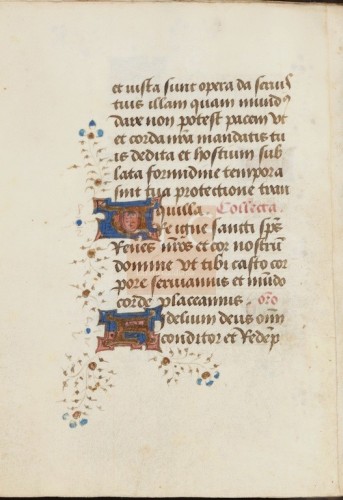 et iusta sunt opera da seruis
tuis illam quam mundus
dare non potest pacem vt
et corda nra mandatis tu
is dedita et hostium sub
lata formidine tempora
sint tua protectione tran
quilla. Collecta.
Ure igne sancti sps
Renes nros et cor nostru
domine vt tibi casto cor
pore seruiamus et mudo
corde placeamus. oro
Fidelium deus oim
conditor et Redep